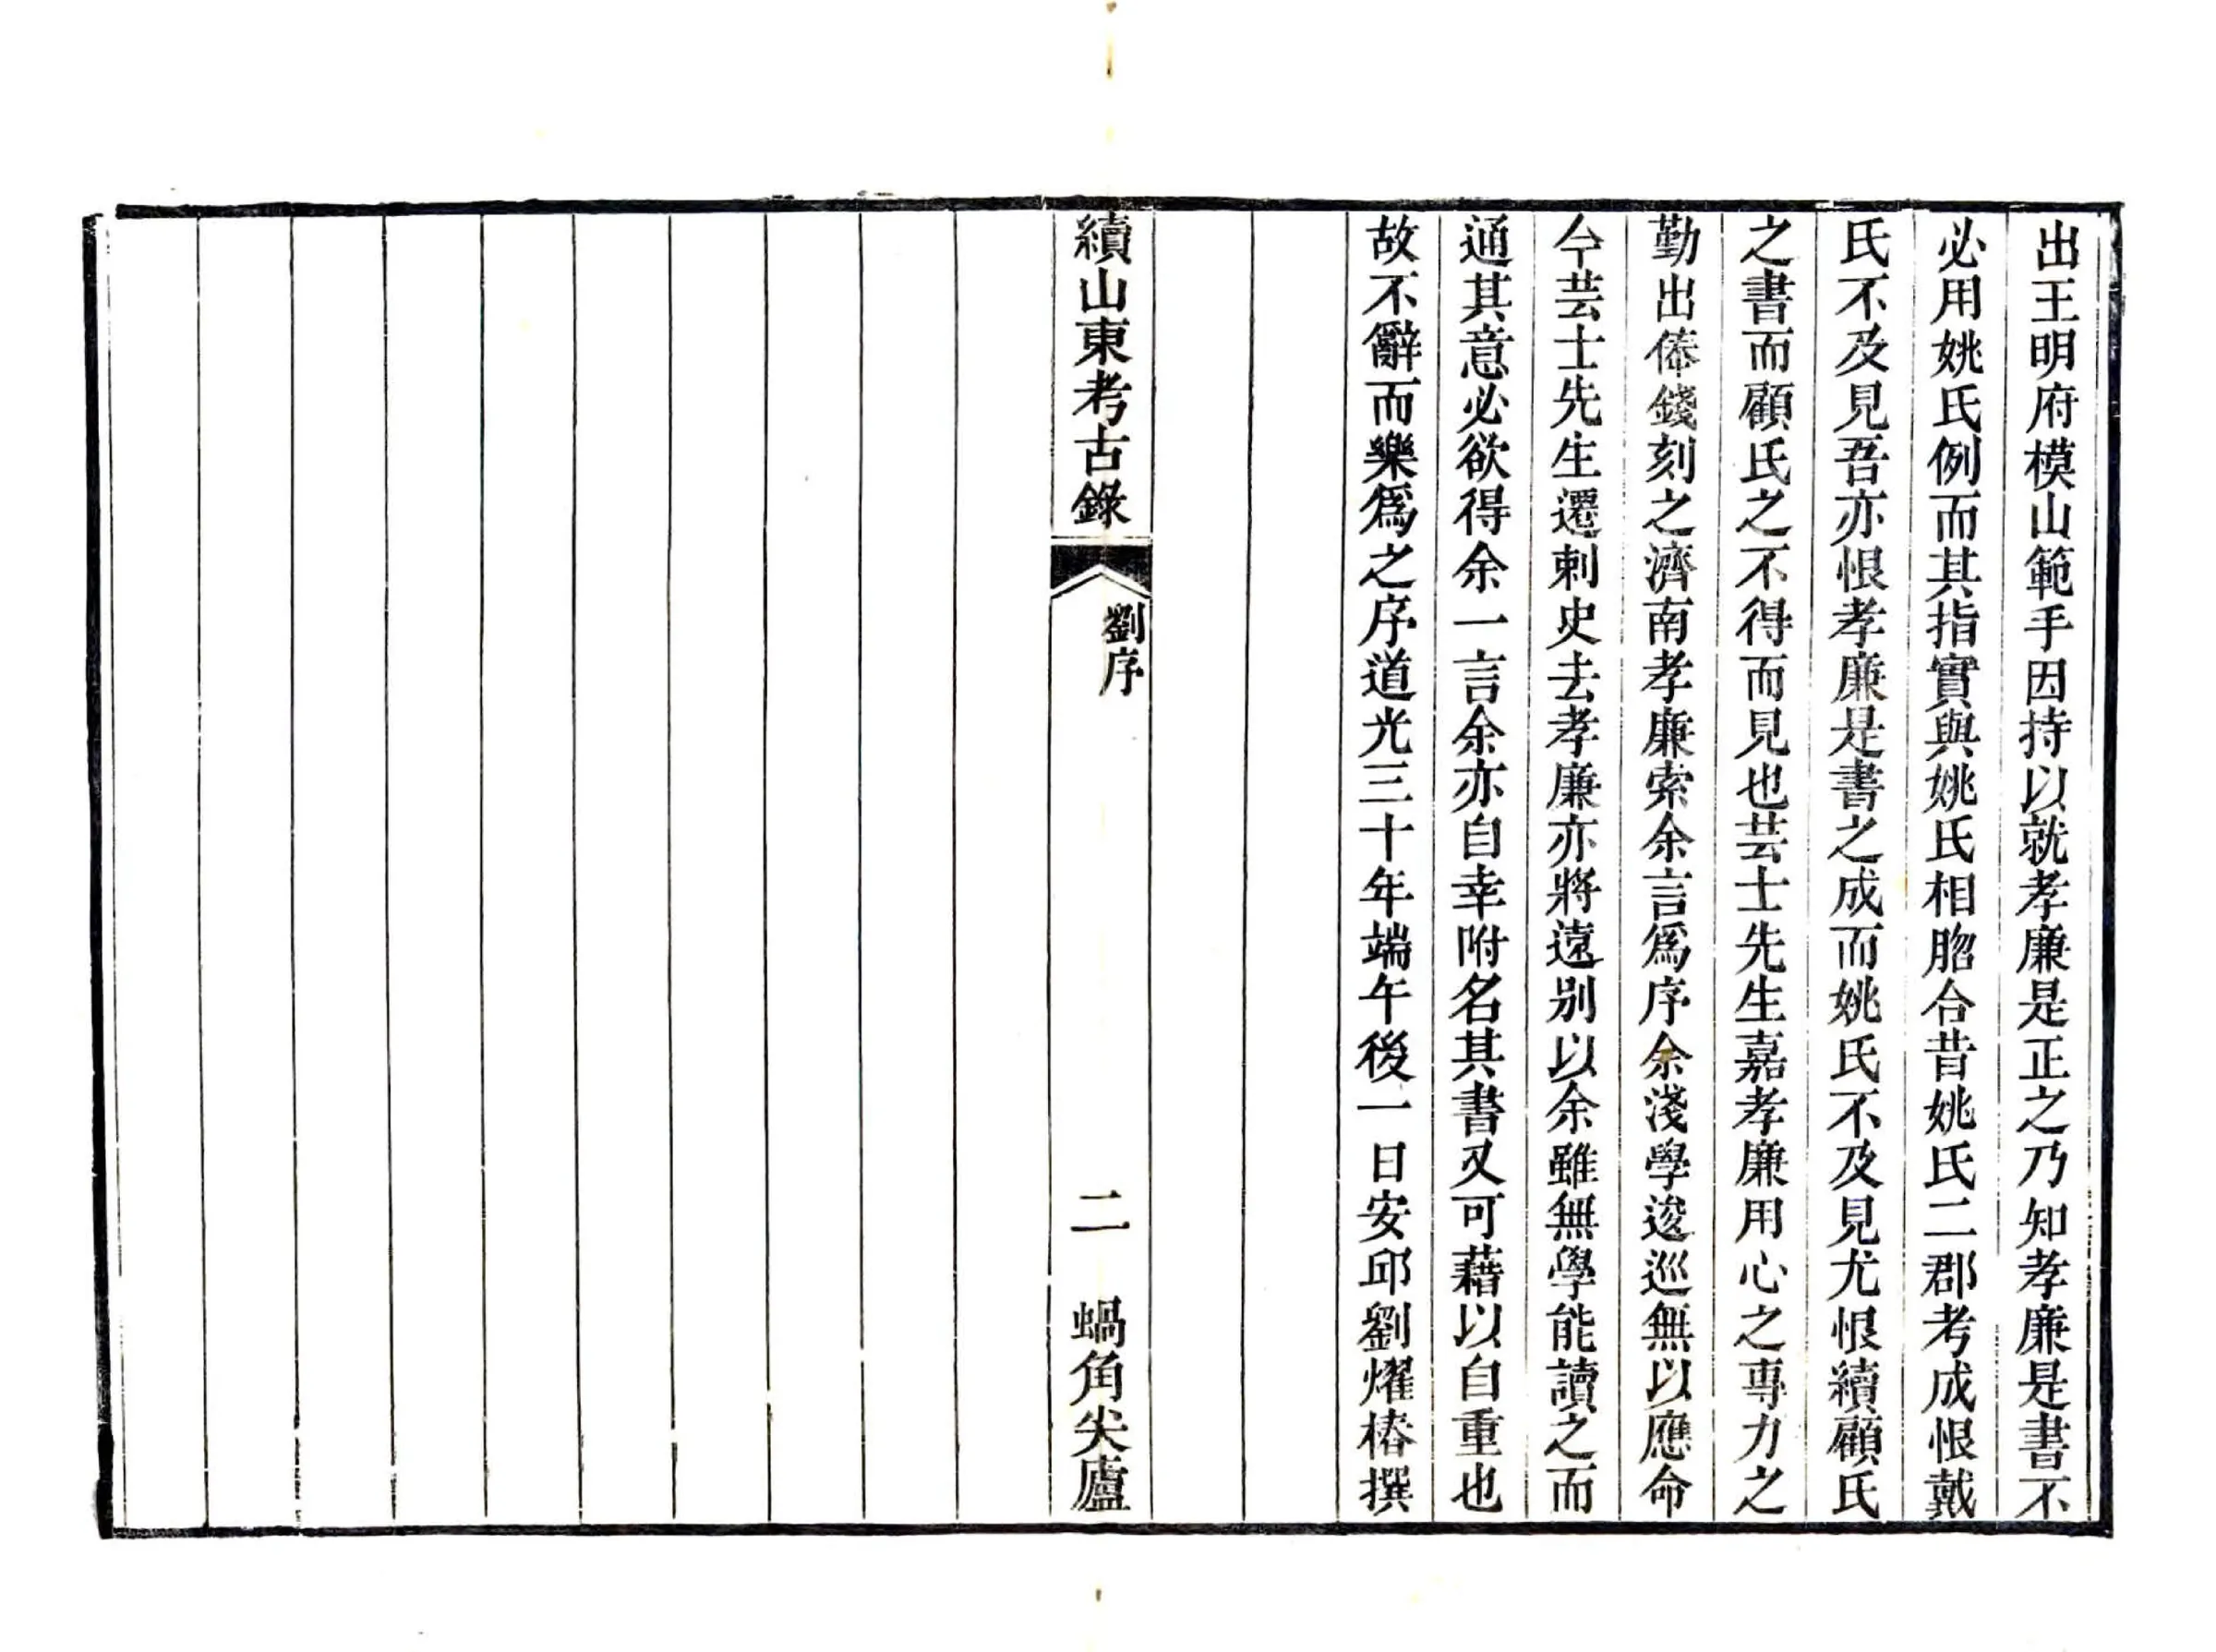 出王明府模山範手因持以就孝廉是正之乃知孝廉是書不
必用姚氏例而其指實與姚氏相脗合昔姚氏二郡考成恨戴
氏不及見吾亦恨孝廉是書之成而姚氏不及見尤恨續顧氏
之書而顧氏之不得而見也芸士先生嘉孝廉用心之專力之
勤出俸錢刻之濟南孝廉索余言爲序余淺學逡巡無以應命
今芸士先生遷刺史去孝廉亦將遠别以余雖無學能讀之而
通其意必欲得余一言余亦自幸附名其書又可藉以自重也
故不辭而樂爲之序道光三十年端午後一日安邱劉燿椿撰
續山東考古錄
劉序
二
蝸角尖廬